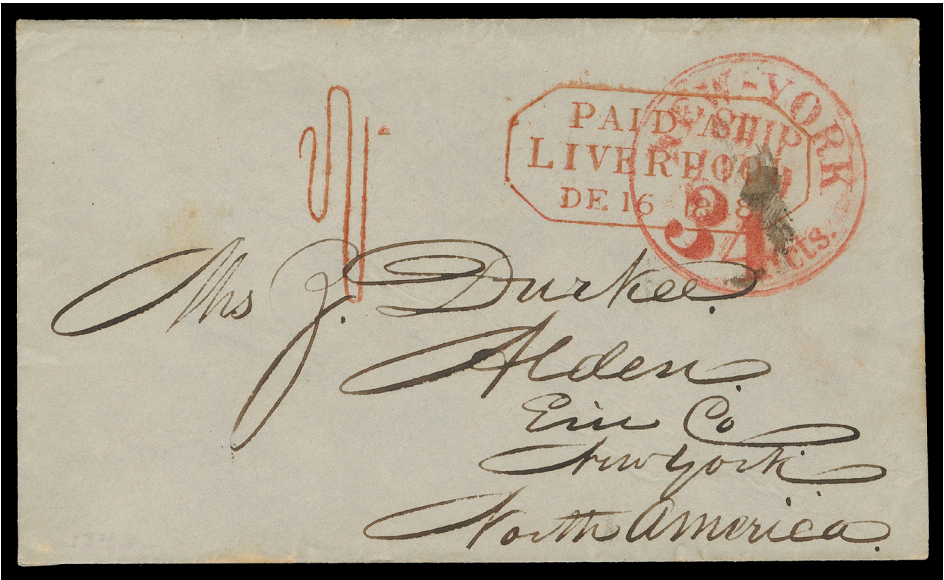 PAID AT
LIVERPOOL
DE 16 1848
NEW-YORK
SHIP
34 cts.
Mrs J. Durkee.
Alden.
Erie Co
New York
North America.